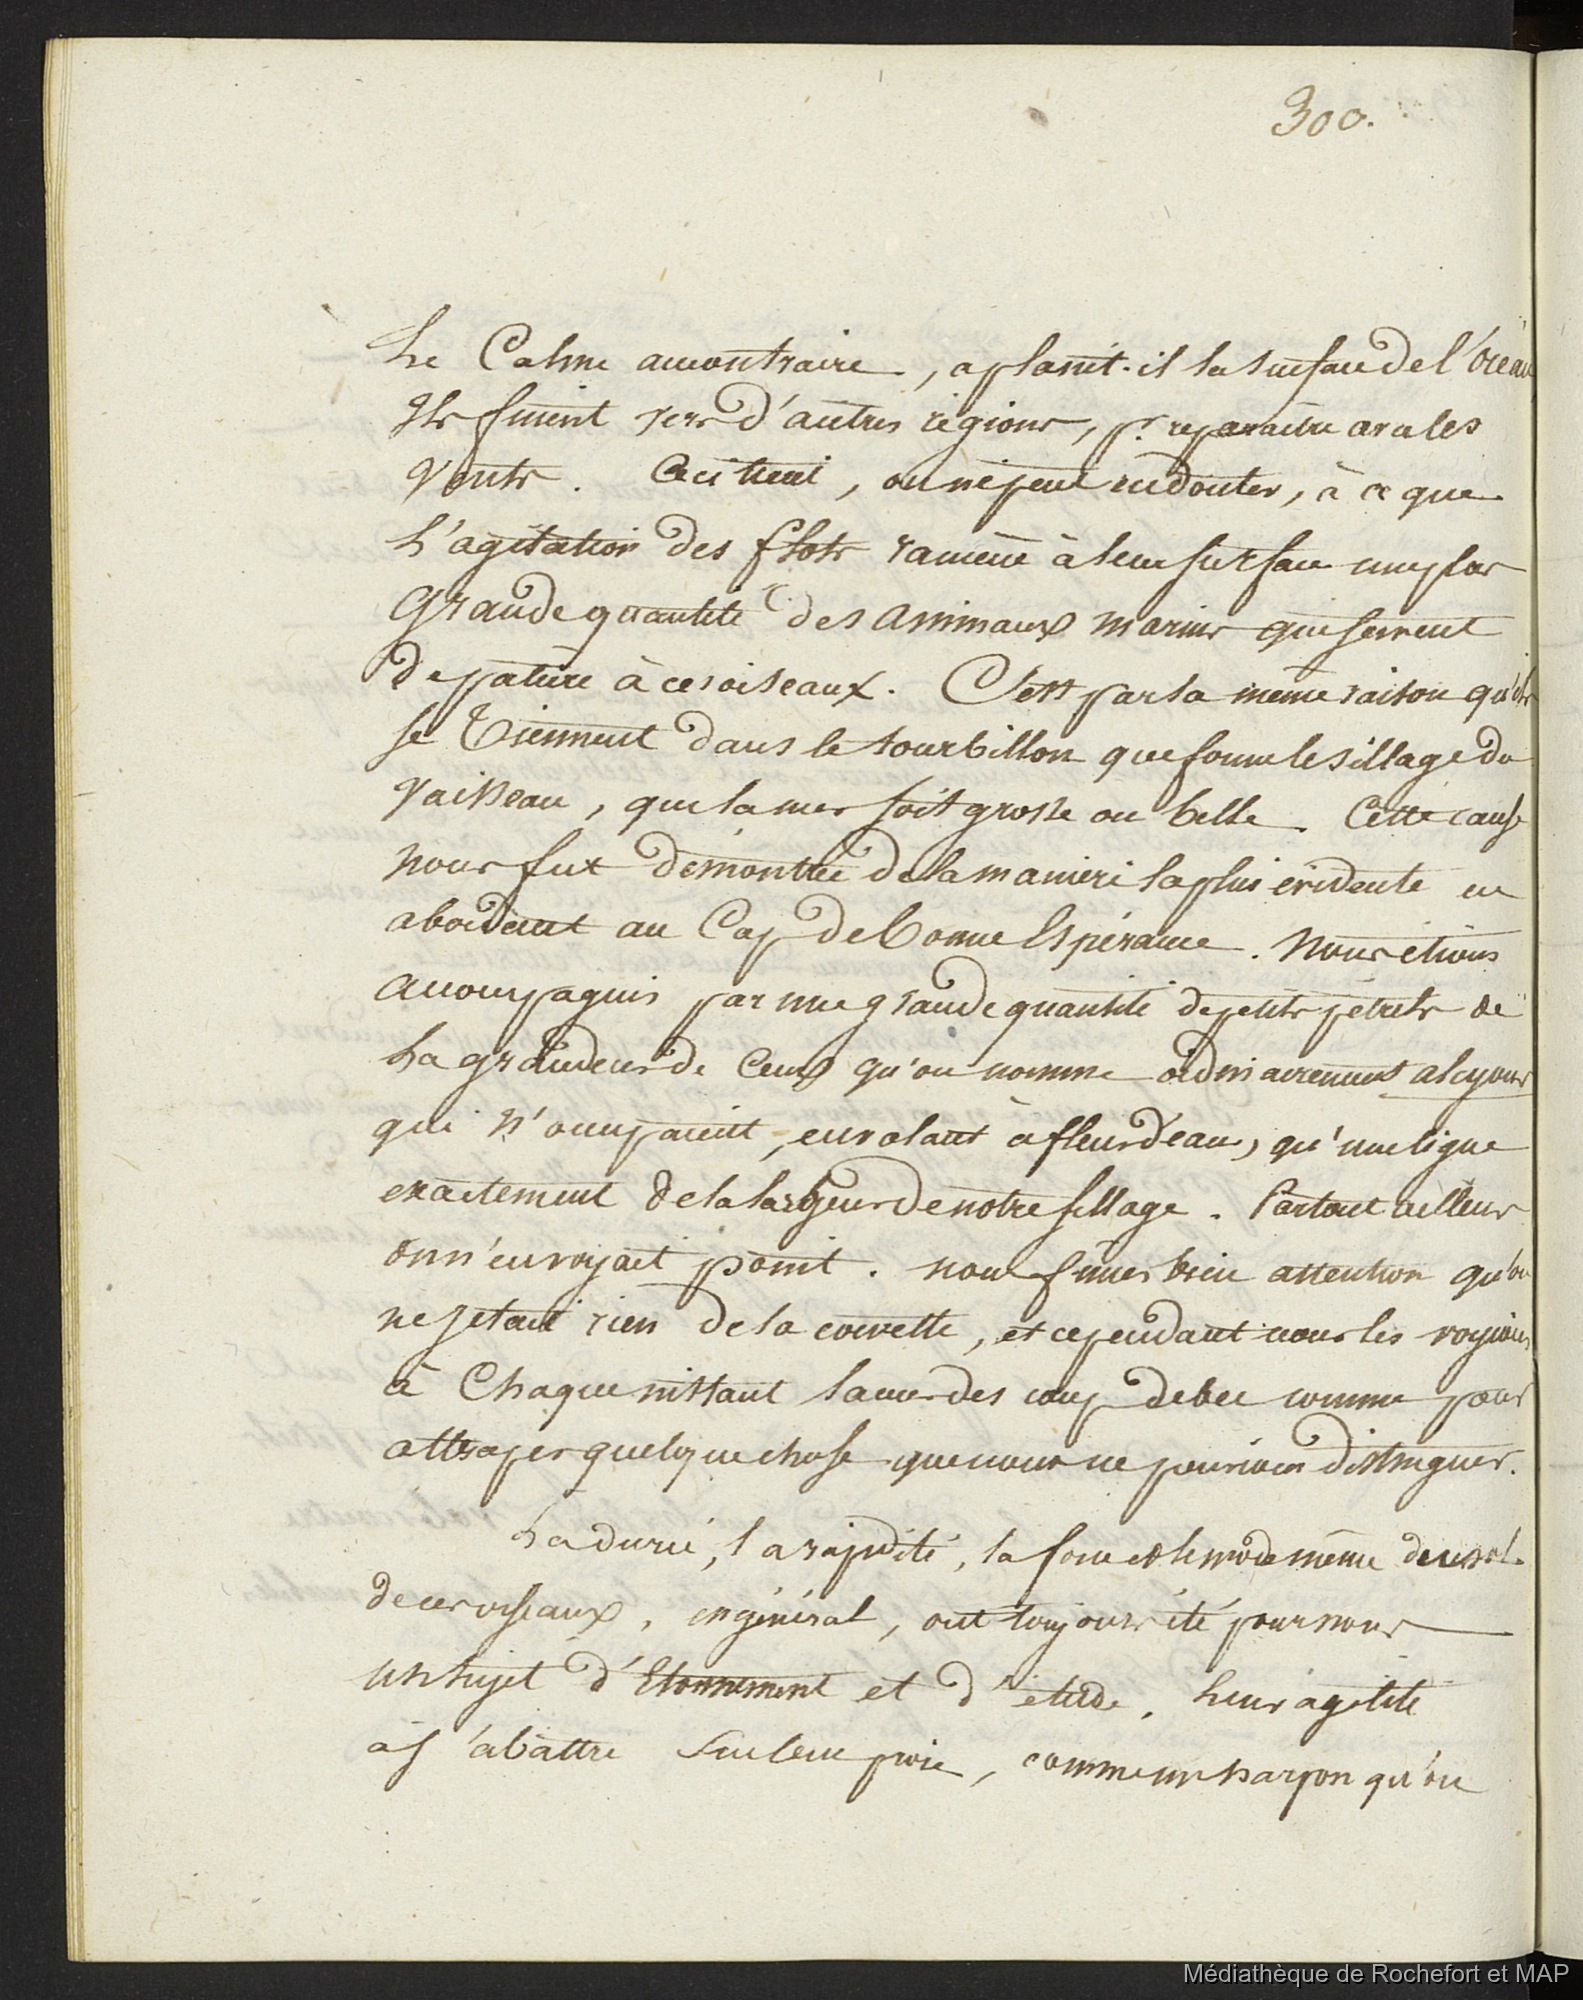 300.
Le Calme aucontraire, aplanit-il la surface de l'océan
Ils fuient vers d'autres régions, pr. reparaitre avec les
Vents. Ceci tient, on ne peut en douter, à ce que
L'agitation des flots ramène à leur surface une plus
Grande quantité des Animaux marins qui servent
de pature à ces oiseaux. C'est par la même raison qu'ils
se Tiennent dans le tourbillon que forme le sillage du
Vaisseau, que la mer soit grosse ou belle. Cette cause
nous fut démontrée de la manière la plus évidente en
abordant au Cap de bonne Espérance. Nous étions
accompagnés par une grande quantité de petits pétrels de
La grandeur de Ceux qu'on nomme ordinairement alcyons
qui n'occupaient, en volant à fleur d'eau, qu'une ligne
exactement de la largeur de notre sillage. Partout ailleurs
on n'en voyait point. nous fimes bien attention qu'on
ne jetait rien de la corvette, et cependant nous les voyions
à Chaque instant lancer des coup de bec comme pour
attraper quelque chose que nous ne pouvions distinguer.
La durée, la rapidité, la force et le mode même de vol
de ces oiseaux, en général, ont toujours été pour nous
un sujet d'Etonnement et d'étude. Leur agilité
à s'abattre sur leur proie, comme un harpon qu'on
Médiathèque de Rochefort et MAP